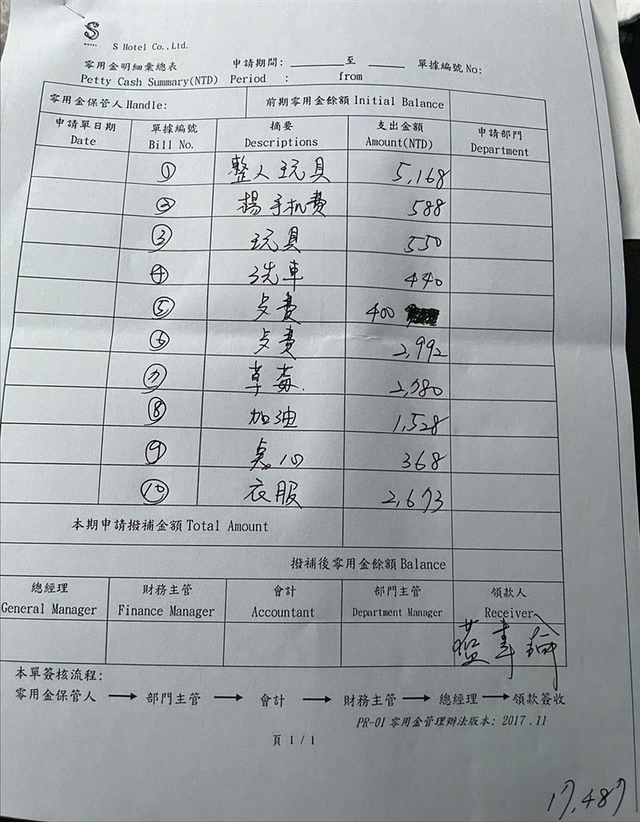 S
S Hotel Co.,Ltd.
零用金明細彙總表 申請期間: 至 單據編號 No:
Petty Cash Summary(NTD) Period : from
零用金保管人 Handle: 前期零用金餘額 Initial Balance
申請單日期 單據編號 摘要 支出金額 申請部門
Date Bill No. Descriptions Amount(NTD) Department
① 整人玩具 5,168
② 揚手机費 588
③ 玩具 550
④ 洗車 440
⑤ 歺費 400
⑥ 歺費 2,992
⑦ 草莓 2,780
⑧ 加油 1,528
⑨ 奌心 368
⑩ 衣服 2,673
本期申請撥補金額 Total Amount
撥補後零用金餘額 Balance
總經理 財務主管 會計 部門主管 領款人
General Manager Finance Manager Accountant Department Manager Receiver
本單簽核流程:
零用金保管人 → 部門主管 → 會計 → 財務主管 → 總經理 → 領款簽收
PR-01 零用金管理辦法版本: 2017.11
頁 1 / 1
17,487